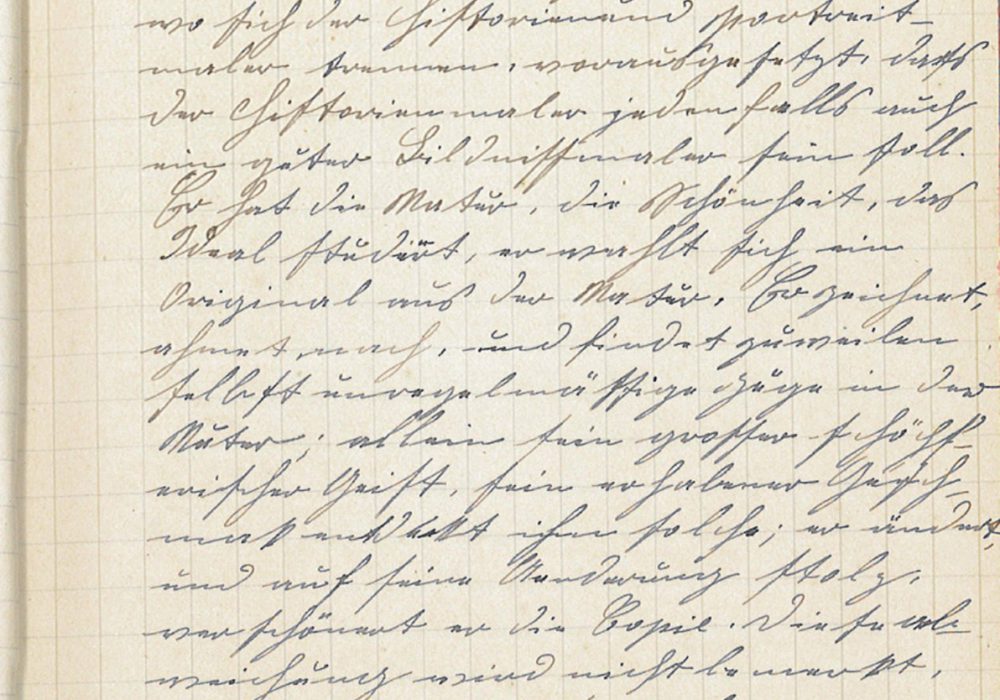 wo sich der Historien und Portreit-
maler trennen, vorausgesetzt, dass
der Historienmaler jedenfalls auch
ein guter Bildnissmaler sein soll.
Er hat die Natur, die Schönheit, das
Ideal studiert, er wahlt sich ein
Original aus der Natur. Er zeichnet,
ahmet nach, und findet zuweilen
selbst unregelmässige Züge in der
Natur; allein sein grosser schöpf-
erischer Geist, sein erhabener Gesch-
mak entdekt ihm solche; er ändert,
und auf seine Aenderung stolz,
verschönert er die Copie. Diese ab-
weichung wird nicht bemerkt,